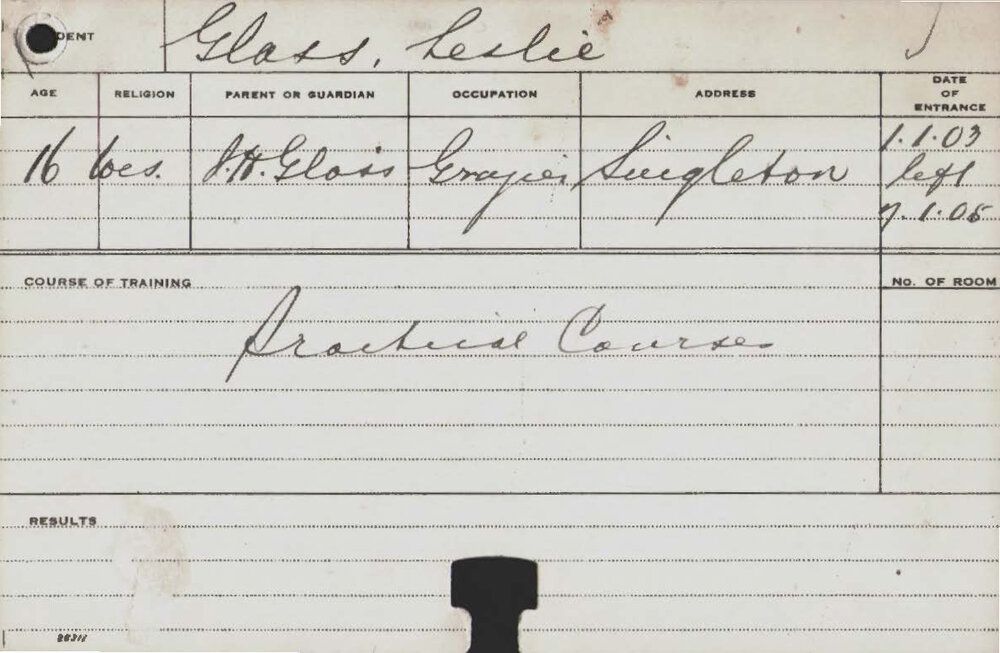 DENT Glass, Leslie
AGE RELIGION PARENT OR GUARDIAN OCCUPATION ADDRESS DATE OF ENTRANCE
16 Wes. J.H. Glass Grazier Singleton 1.1.03
left
7.1.05
COURSE OF TRAINING No. OF ROOM
Practical Course
RESULTS